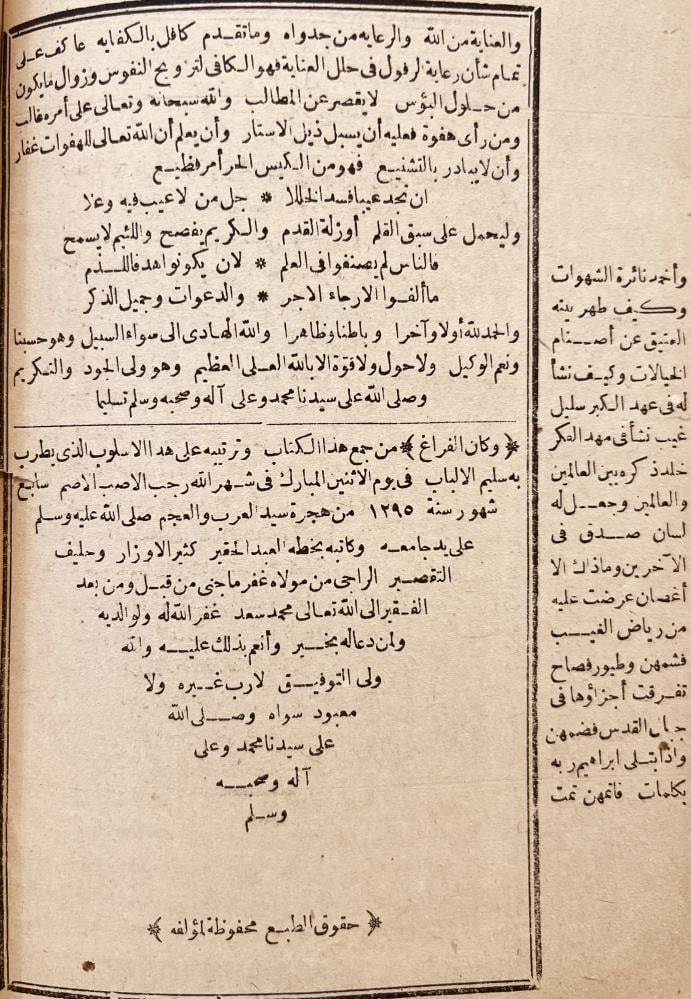 والعناية من الله والرعايه من جدواه وماتقدم كافل بالكفايه عاكف على
تمام شأن رعاية الرفول فى حلل العناية فهو الكافى لترويح النفوس وزوال مايكون
من حلول البؤس لايقصر عن المطالب والله سبحانه وتعالى على أمره غالب
ومن رأى هفوة فعليه أن يسبل ذيل الاستار وأن يعلم أن الله تعالى للهفوات غفار
وأن لايبادر بالتشنيع فهو من الكيس الحر أمر فظيع
ان تجد عيبا فسد الخللا * جل من لاعيب فيه وعلا
وليحمل على سبق القلم أوزلة القدم والكريم يفصح واللئيم لايسمح
فالناس لم يصنفوا فى العلم * لان يكونوا هدفا للذم
ما ألفوا الارجاء الاجر * والدعوات وجميل الذكر
والحمدلله أولا وآخرا وباطنا وظاهرا والله الهادى الى سواء السبيل وهو حسبنا
ونعم الوكيل ولاحول ولاقوة الابالله العلى العظيم وهو ولى الجود والتكريم
وصلى الله على سيدنا محمد وعلى آله وصحبه وسلم تسليما
﴿وكان الفراغ﴾ من جمع هذا الكتاب وترتيبه على هذا الاسلوب الذى يطرب
به سليم الالباب فى يوم الاثنين المبارك فى شهر الله رجب الاصب الاصم سابع
شهور سنة ١٢٩٥ من هجرة سيد العرب والعجم صلى الله عليه وسلم
على يد جامعه وكاتبه بخطه العبد الحقير كثير الاوزار وحليف
التقصير الراجى من مولاه غفر ماجنى من قبل ومن بعد
الفقير الى الله تعالى محمد سعد غفر الله له ولوالديه
ولمن دعاله بخير وأنعم بذلك عليه والله
ولى التوفيق لارب غيره ولا
معبود سواه وصلى الله
على سيدنا محمد وعلى
آله وصحبه
وسلم
﴿حقوق الطبع محفوظة لمؤلفه﴾
وأخمد نائرة الشهوات
وكيف طهر بيته
العتيق عن أصنام
الخيالات وكيف نشأ
له فى عهد الكبر سليل
غيب نشأ فى مهد الفكر
خلد ذكره بين العالمين
والعالمين وجعل له
لسان صدق فى
الآخرين وماذاك الا
أغصان عرضت عليه
من رياض الغيب
فشمهن وطيور فصاح
تفرقت أجزاؤها فى
جبال القدس فضمهن
واذابتلى ابراهيم ربه
بكلمات فاتمهن تمت